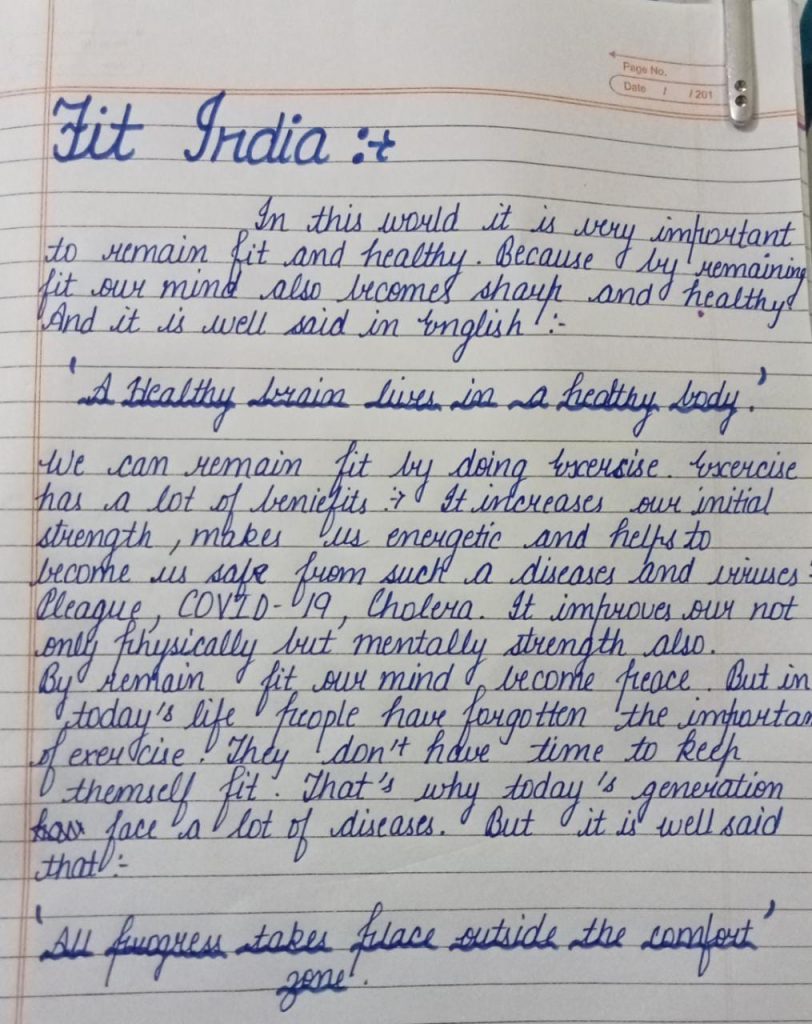 Page No.
Date / / 201
Fit India :-
In this world it is very important
to remain fit and healthy. Because by remaining
fit our mind also becomes sharp and healthy
And it is well said in English :-
'A Healthy brain lives in a healthy body.'
We can remain fit by doing Excersise. Excercise
has a lot of beniefits :- It increases our initial
strength, makes us energetic and helps to
become us safe from such a diseases and viruses :
Cleague, COVID-19, Cholera. It improves our not
only physically but mentally strength also.
By remain fit our mind become peace. But in
today's life people have forgotten the importan
of exercise. They don't have time to keep
themself fit. That's why today's generation
face a lot of diseases. But it is well said
that :-
'All progress takes place outside the comfort'
zone'.